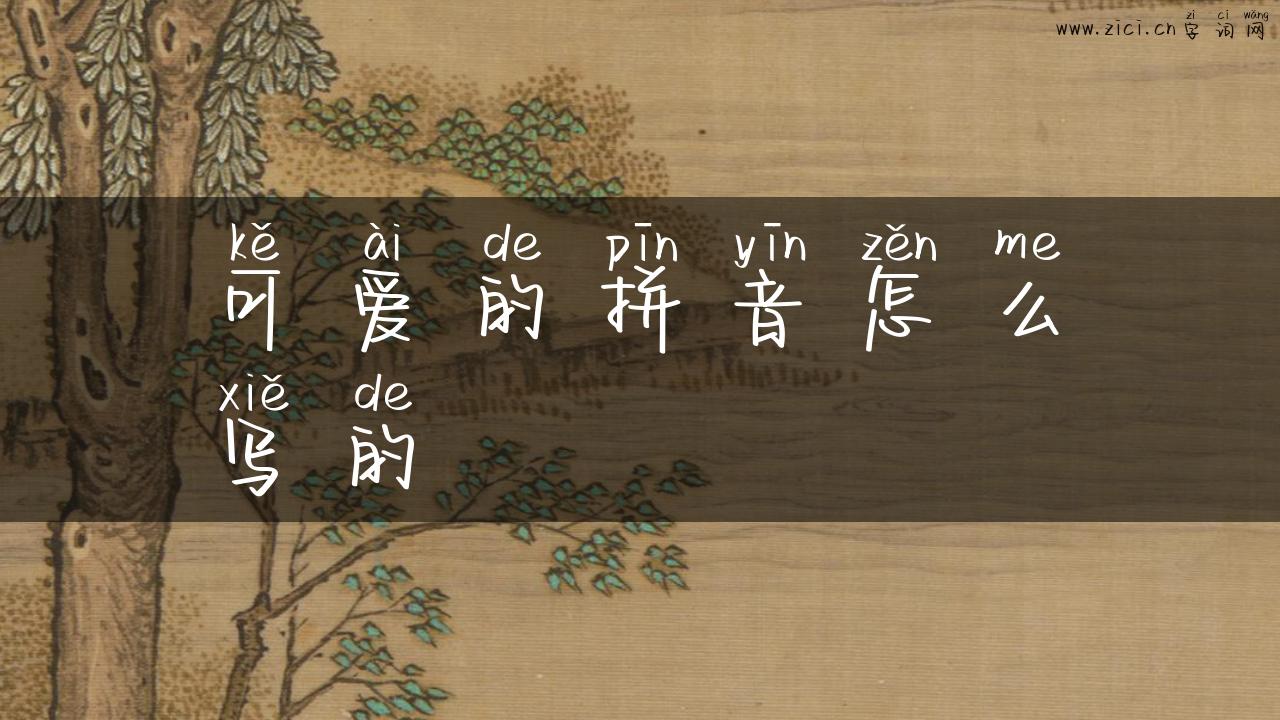 zì cí wǎng
www.zici.cn 字词网
kě ài de pīn yīn zěn me
可爱的拼音怎么
xiě de
写的